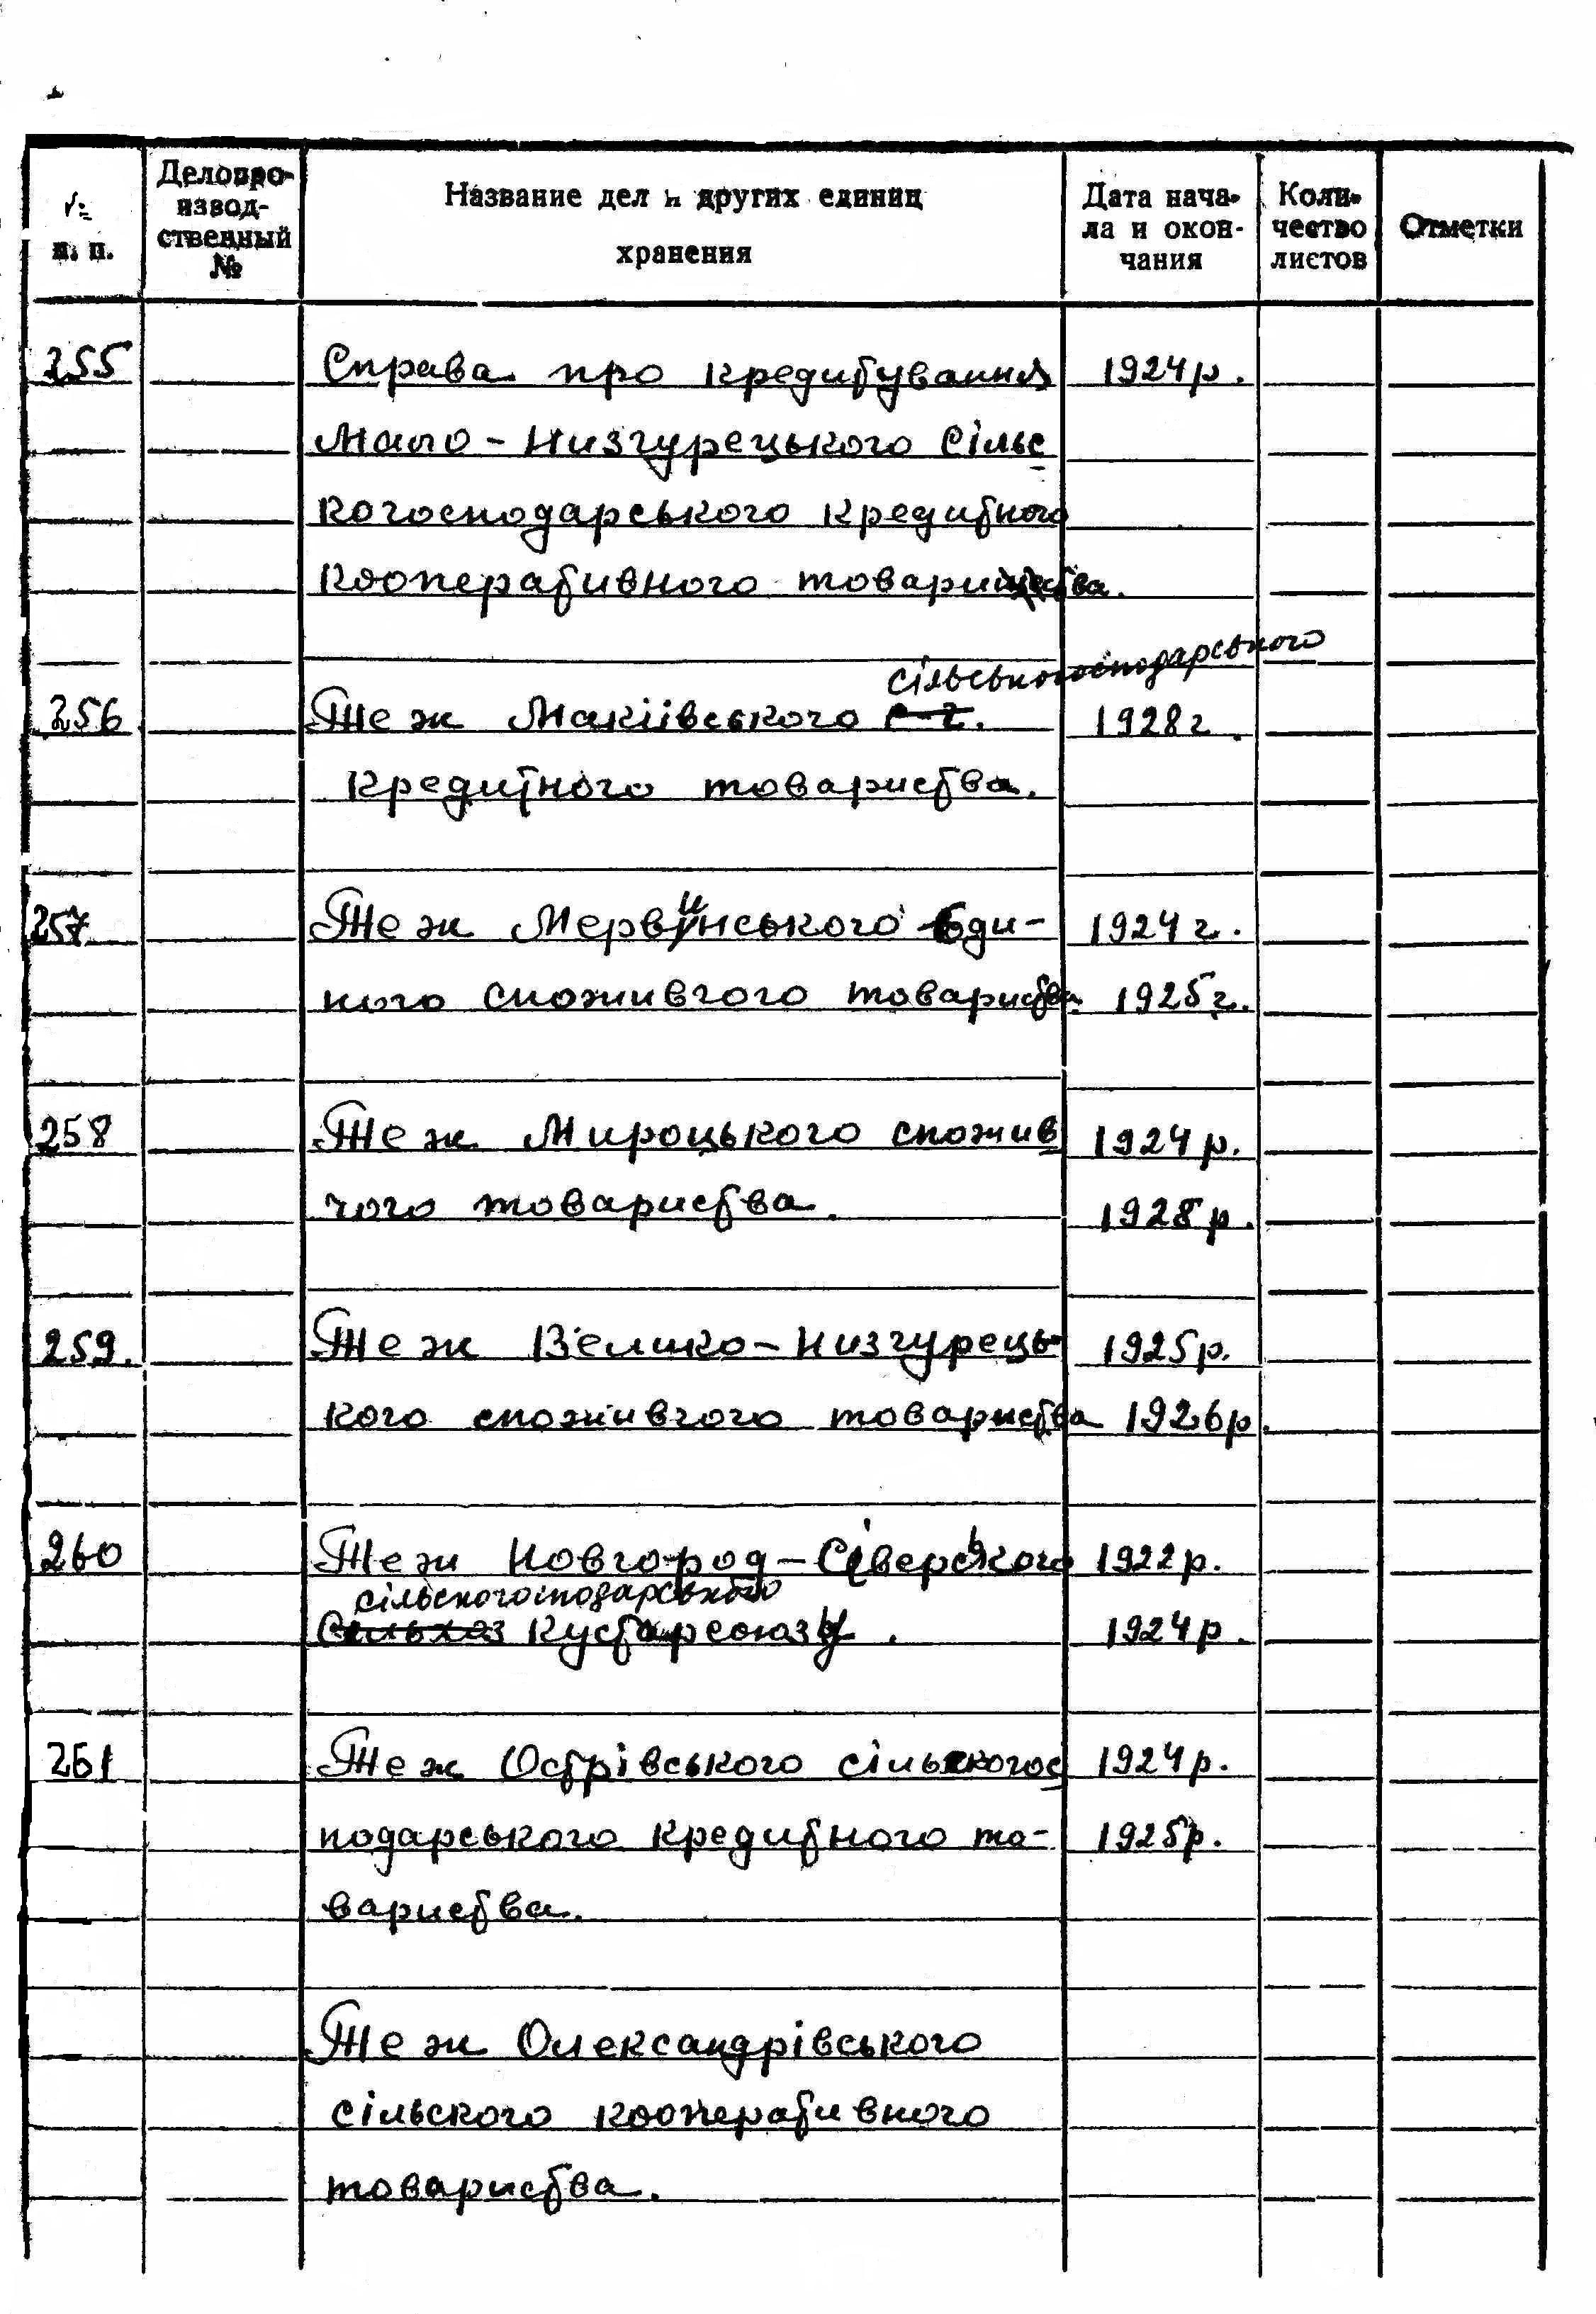 № п. п. Делопро- извод- ственный № Название дел и других единиц хранения Дата нача- ла и окон- чания Коли- чество листов Отметки
255 Справа про кредитування 1924р.
Мало-Низгурецького Сільс
когосподарського кредитного
кооперативного товариства.
сільськогосподарського
256 Те ж Макіївського с-г. 1928г.
кредитного товариства.
257 Те ж Мервинського Єди- 1924г.
ного споживчого товариства 1925г.
258 Те ж Мироцького спожив 1924р.
чого товариства. 1928р.
259. Те ж Велико-Низгурець- 1925р.
кого споживчого товариства 1926р.
260 Те ж Новгород-Сіверського 1922р.
сільськогосподарського
Сельхоз Кустарсоюзу. 1924р.
261 Те ж Острівського сількогос 1924р.
подарського кредитного то- 1925р.
вариства.
Те ж Олександрівського
сільського кооперативного
товариства.